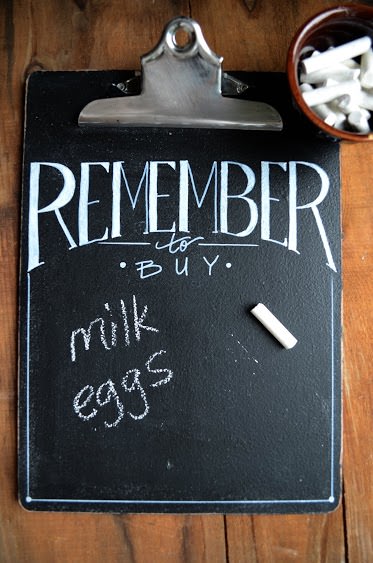 REMEMBER
to
• BUY •
milk
eggs